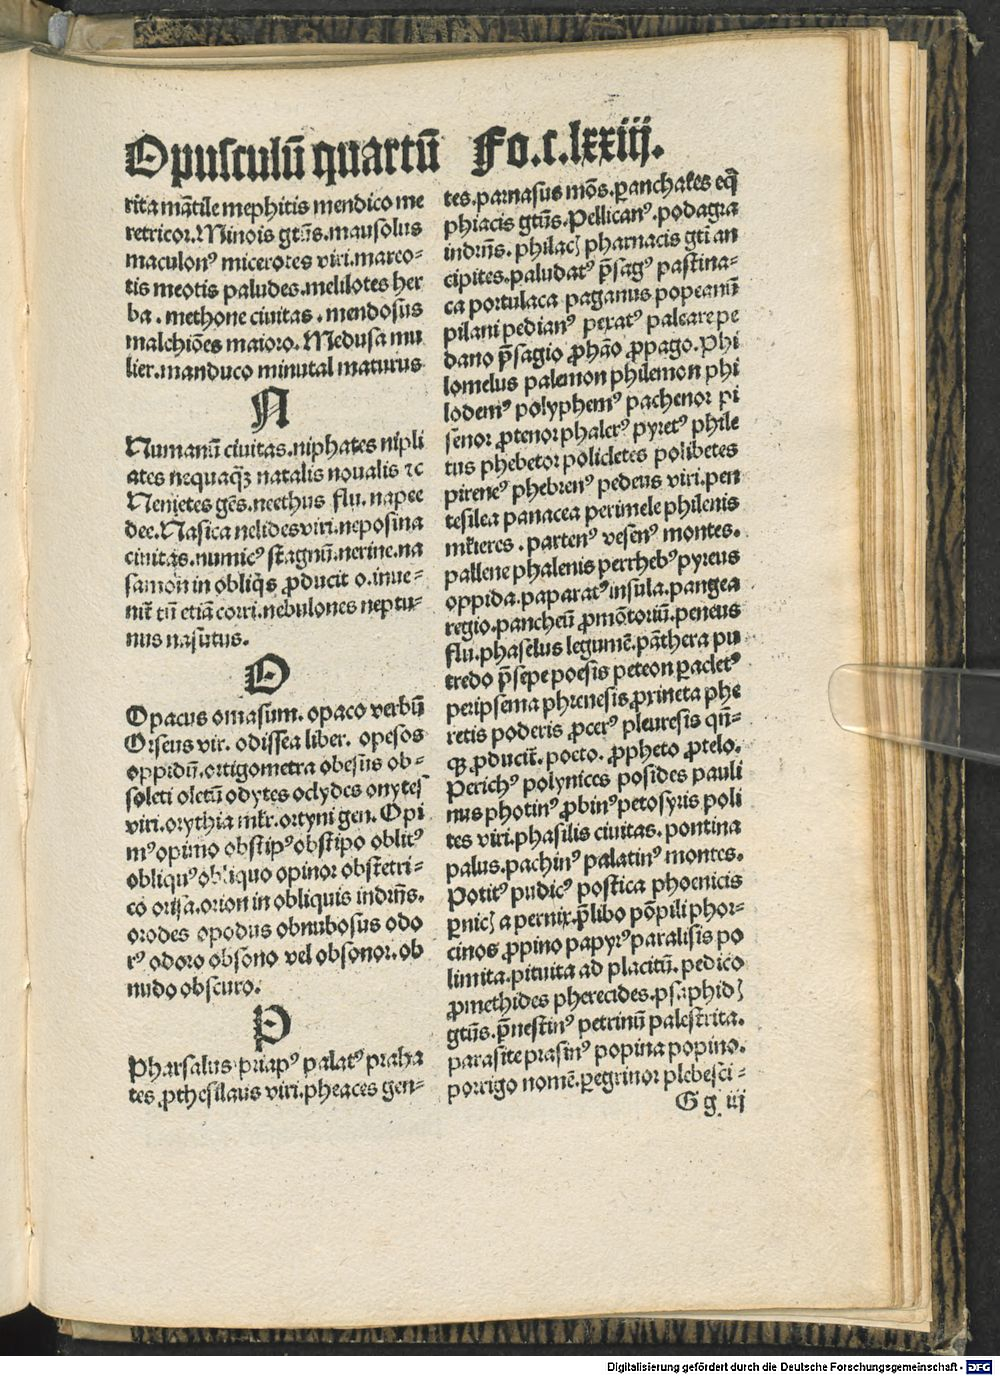 Opusculū quartū Fo.c.lxxiij.
rita mātile mephitis mendico me
retricor. Minois gtūs. mausolus
maculonꝰ micerotes viri. mareo-
tis meotis paludes. melilotes her
ba. methone ciuitas. mendosus
malchiōes maioro. Medusa mu
lier. manduco minutal maturus
N
Numanū ciuitas. niphates nipli
ates nequaqꝫ natalis noualis ⁊c
Nenjetes gēs. neethus flu. napee
dee. Nasica nelides viri. neposina
ciuitas. numicꝰ stagnū. nerine. na
samon in obliq̄s ꝓducit o. inue-
nit̄ tū etiā corri. nebulones neptu-
nus nasutus.
O
Opacus omasum. opaco verbū
Orseus vir. odissea liber. opesos
oppidū. ortigometra obesus ob-
soleti oletū odytes oclydes onytes
viri. orythia mlr̄. ortyni gen. Opi
mꝰ opimo obstipꝰ obstipo oblitꝰ
obliquꝰ obliquo opinor obstetri-
co orisa. orion in obliquis indrn̄s.
orodes opodus obnubosus odo
rꝰ odoro obsono vel obsonor. ob
nudo obscuro.
P
Pharsalus priapꝰ palatꝰ praha
tes ꝓthesilaus viri. pheaces gen-
tes. parnasus mōs. ꝑanchates eq̄
phiacis gtūs. Pellicanꝰ. podagra
indrn̄s. philacꝫ pharnacis gti an
cipites. paludatꝰ p̄sagꝰ pastina-
ca portulaca paganus popeanū
pilani pedianꝰ pexatꝰ paleare pe
dano p̄sagio ꝓhāo ꝓpago. Phi
lomelus palemon philemon phi
lodemꝰ polyphemꝰ pachenor pi
sēnor ꝓtenor phalerꝰ pyretꝰ phile
tus phebetor policletes polibetes
pireneꝰ phebrenꝰ pedeus viri. pen
tesilea panacea perimele philenis
ml̄ieres. partenꝰ vesenꝰ montes.
pallene phalenis perrhebꝰ pyreus
oppida. paparatꝰ insula. pangea
regio. pancheū ꝓmōtoriū. peneus
flu. phaselus legumē. pāthera pu
tredo p̄sepe poesis peteon ꝑacletꝰ
peripsema phrenesis ꝓxineta phe
retis poderis ꝓcerꝰ pleuresis qn̄-
qꝫ ꝓducit̄. poeto. ꝓpheto ꝓtelo.
Perichꝰ polynices posides pauli
nus photinꝰ ꝓbinꝰ petosyris poli
tes viri. phasilis ciuitas. pontina
palus. pachinꝰ palatinꝰ montes.
Potitꝰ pudicꝰ postica phoenicis
ꝑnicꝫ a pernix. p̄libo pōpili phor-
cinos ꝓpino papyrꝰ paralisis po
limita. pituita ad placitū. pedico
ꝓmethides pherecides. psaphidꝫ
gtūs. p̄nestinꝰ petrinū palestrita.
parasite prasinꝰ popina popino.
porrigo nomē. ꝑegrinor plebesci-
G g iij
Digitalisierung gefördert durch die Deutsche Forschungsgemeinschaft - DFG